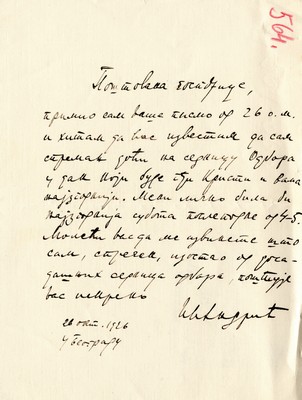 564.
Поштована госпођице,
примио сам ваше писмо од 26 о. м.
и хитам да вас известим да сам
спреман доћи на седницу Одбора
у дан који буде г-ђи Кристи и вама
најзгоднији. Мени лично била би
најзгоднија субота послеподне од 4-5.
Молећи вас да ме извините што
сам, спречен, изостао од доса-
дашњих седница одбора, поштује
вас искрено
Ив. Андрић
28 окт. 1926
у Београду